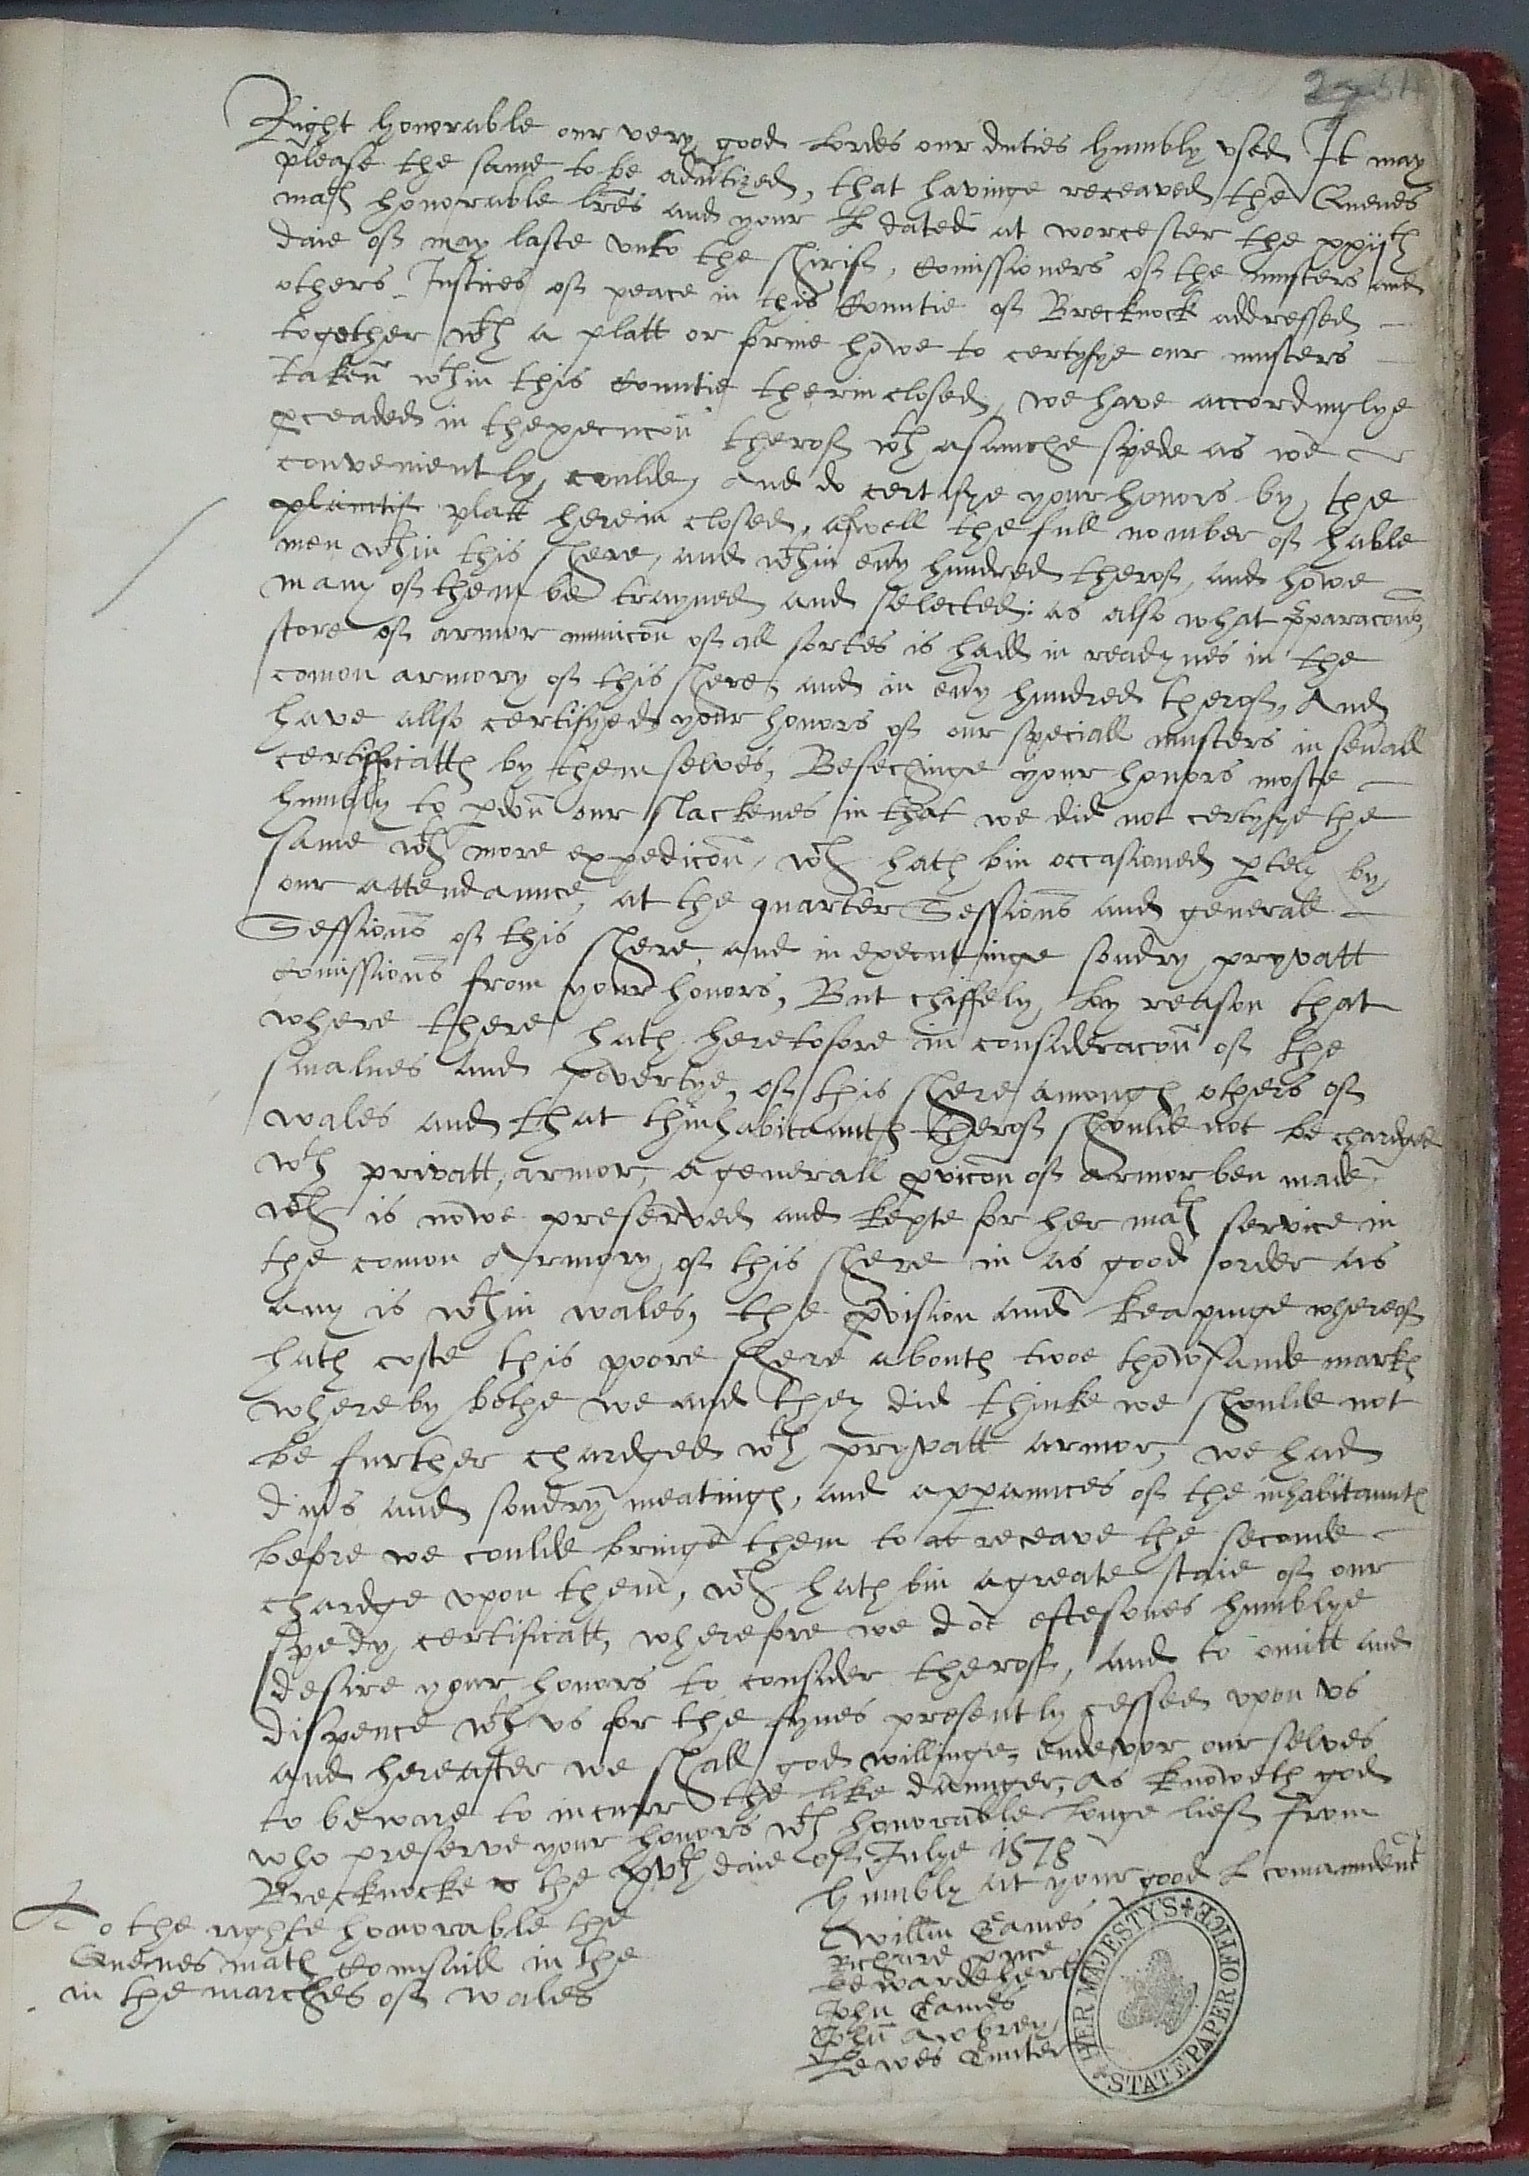 Right honorable our very good Lordes our duties humbly used It may
please the same to be adv'tized, that havinge receaved the Quenes
ma'ts honorable l'res and your L dated at worcester the xxijth
daie of may laste unto the shirif, Comissioners of the musters and
others Justices of peace in this Countie of Brecknock addressed
together wth a platt or forme howe to certyfye our musters
taken wthin this Countie therin closed, we have accordinglye
p'ceaded in thexecucon therof wth asmuche spede as we
conveniently coulde, and do certifye your honors by the
plaintif platt herein closed, aswell the full nomber of hable
men wthin this shere, and wthin ev'y hundred therof, and howe
many of them be trayned and selected: as also what p'paracons
store of armor municon of all sortes is hadd in readynes in the
comon armory of this shere, and in ev'y hundred therof, And
have allso certifyed your honors of our speciall musters in sev'all
certifficatts by themselves, Besechinge your honors moste
humbly to p'don our slackenes in that we did not certyfye the
same wth more expedicon, wch hath bin occasioned p'tely by
our attendaunce, at the quarter Sessions and generall
Sessions of this shere, and in executinge sondry pryvatt
Comissions from your honors, But chiffely, by reason that
where there hath heretofore in consideracon of the
smalnes and povertye, of this shere amongs others of
wales and that thinhabitaunts therof shoulde not be chardged
wth privatt, armor, a generall p'vicon of armor ben made,
wch is nowe preserved and kepte for her mats service in
the comon Armory of this shere in as good order as
any is wthin wales, the p'vision and keapinge whereof
hath coste this poore shere abouth twoe thowsande marks
whereby bothe we and they did thinke we shoulde not
be further chardged wth pryvatt armor, we had
div's and sondry meatings, and apparaunces of the inhabitaunts
before we coulde bringe them to receave the seconde
chardge upon them, wch hath bin a greate staie of our
spedy certificatt, wherefore we doe eftesones humblye
desire your honors to consider therof, and to omitt and
dispence wth us for the fynes presently cessed upon us
and hereafter we shall god willinge, endevor our selves
to beware to incurr the like daunger, as knoweth god
who preserve your honors wth honorable longe lief from
Brecknocke the xvth daie of Julye 1578
humbly at your good L comaundent
Will'm Games
Richard price
Edward herb
John Games
John Awbrey
Lewes Gunter
To the righte honorable the
Quenes mats Counsaill in the
in the marches of wales
HER MAJESTY'S STATE PAPER OFFICE